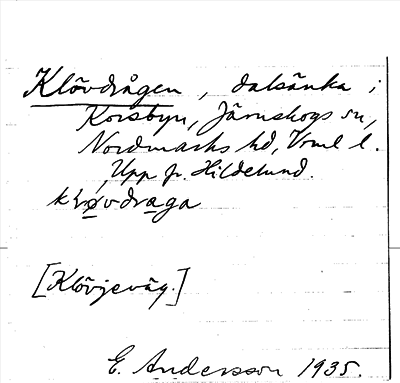 Klövdrågen, dalsänka i
Korsbyn, Järnskogs sn,
Nordmarks hd, Vrml l.
Upp fr. Hildelund.
kløvdraga
[Klövjeväg.]
E. Andersson 1935.